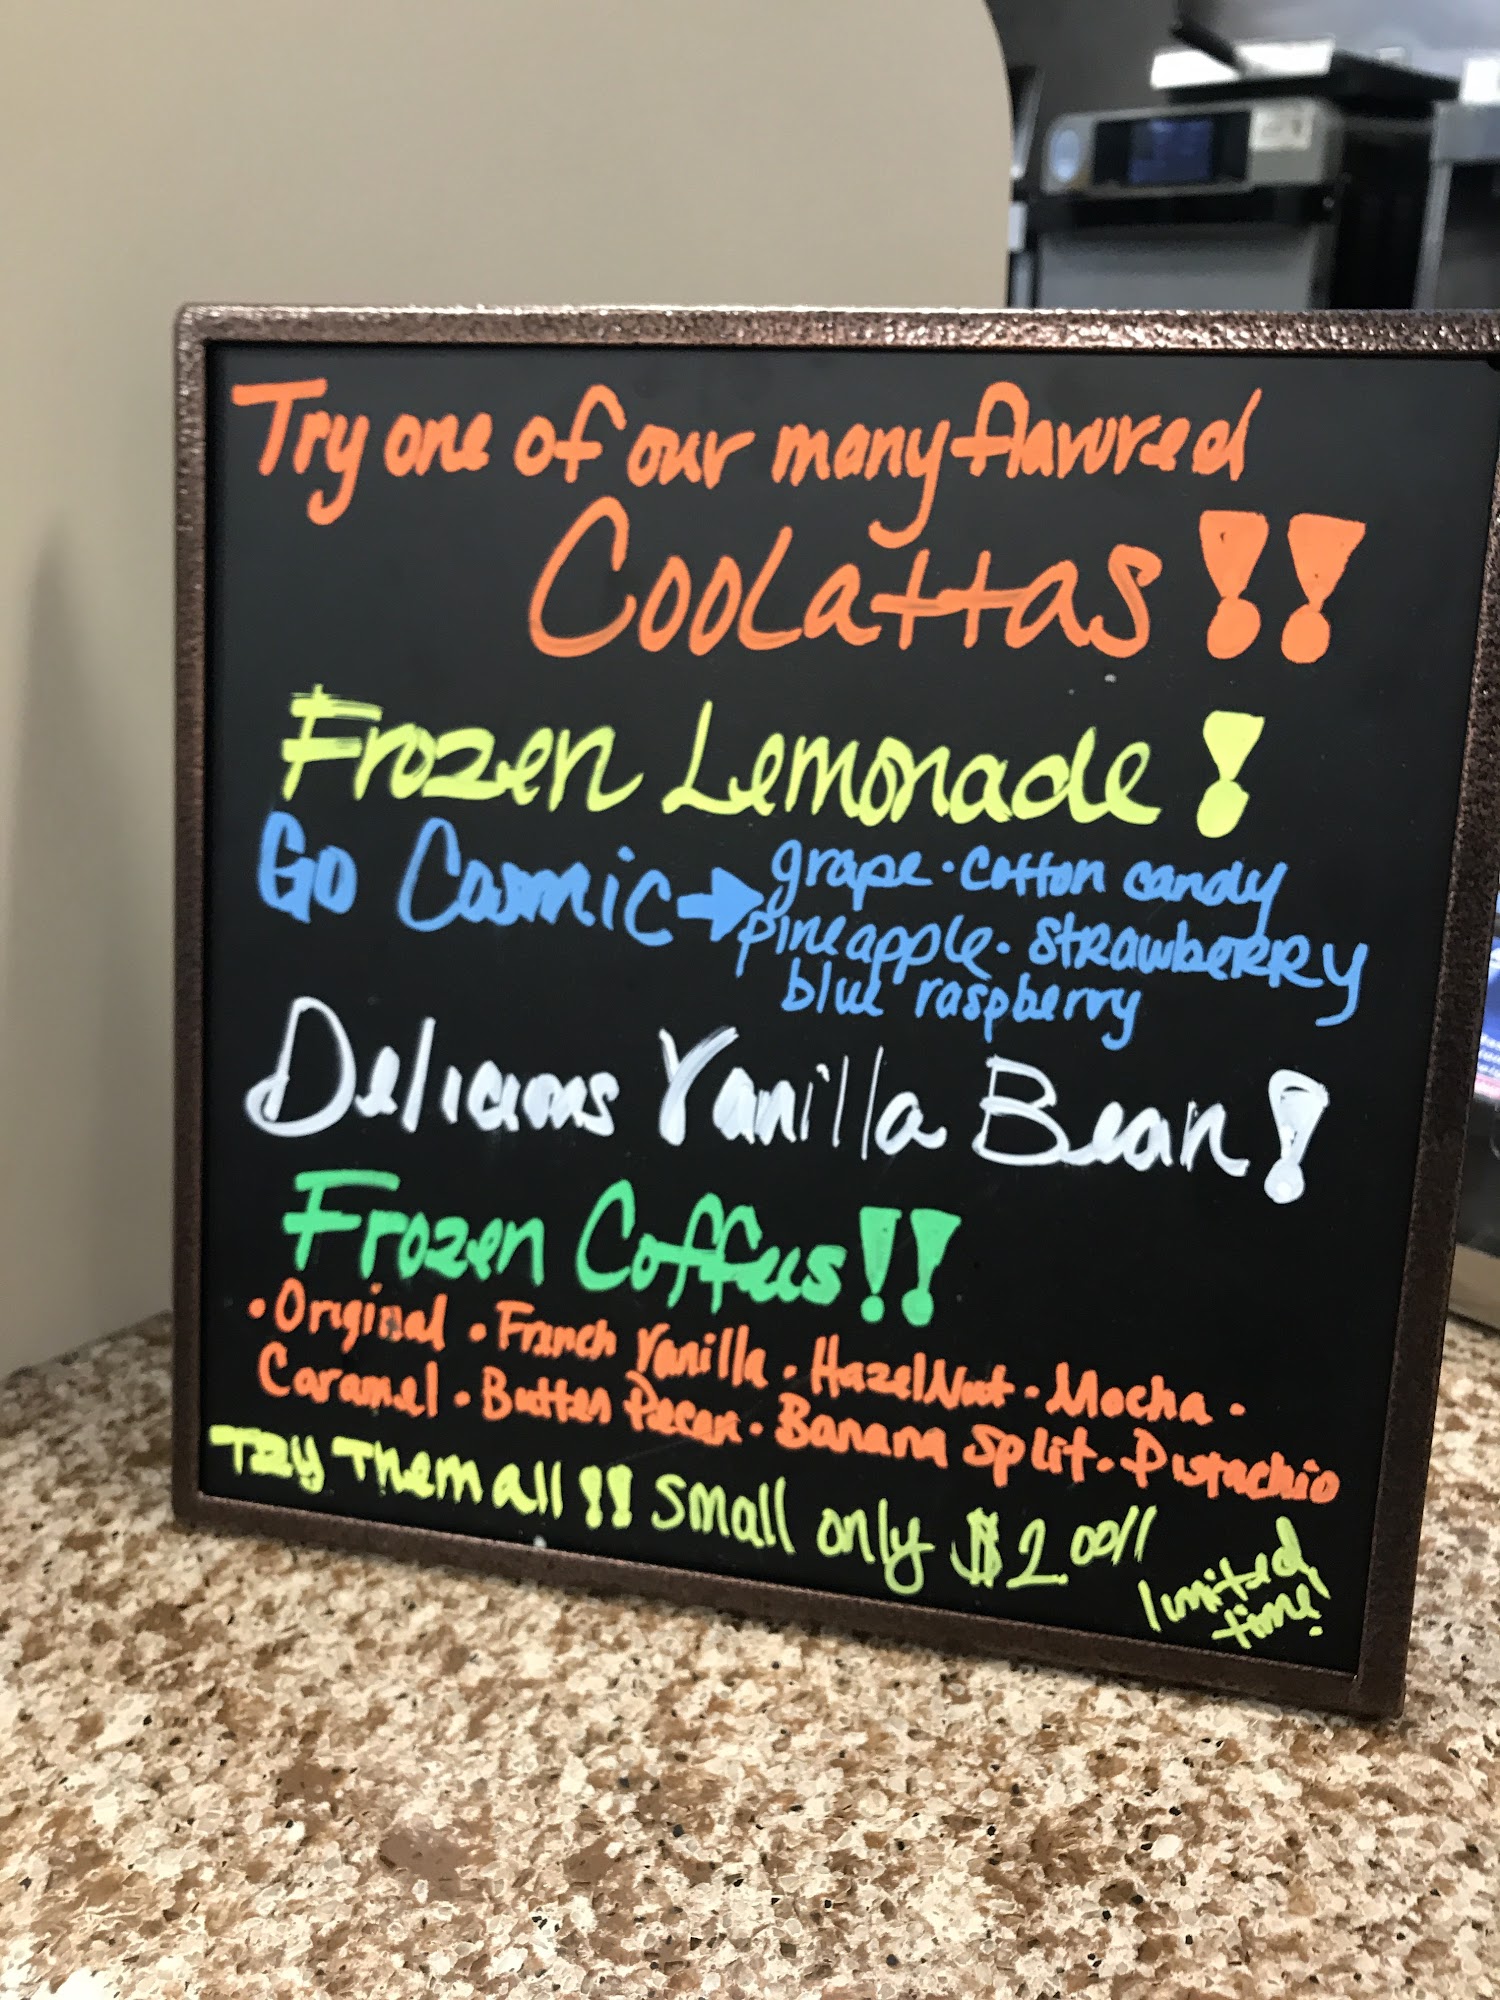 Try one of our many flavored
Coolattas!!
Frozen Lemonade!
Go Cosmic → grape · cotton candy
pineapple · strawberry
blue raspberry
Delicious Vanilla Bean!
Frozen Coffees!!
• Original • French Vanilla • HazelNut • Mocha •
Caramel • Butter Pecan • Banana Split • Pistachio
Try Them all!! Small only $2.00!!
limited
time!